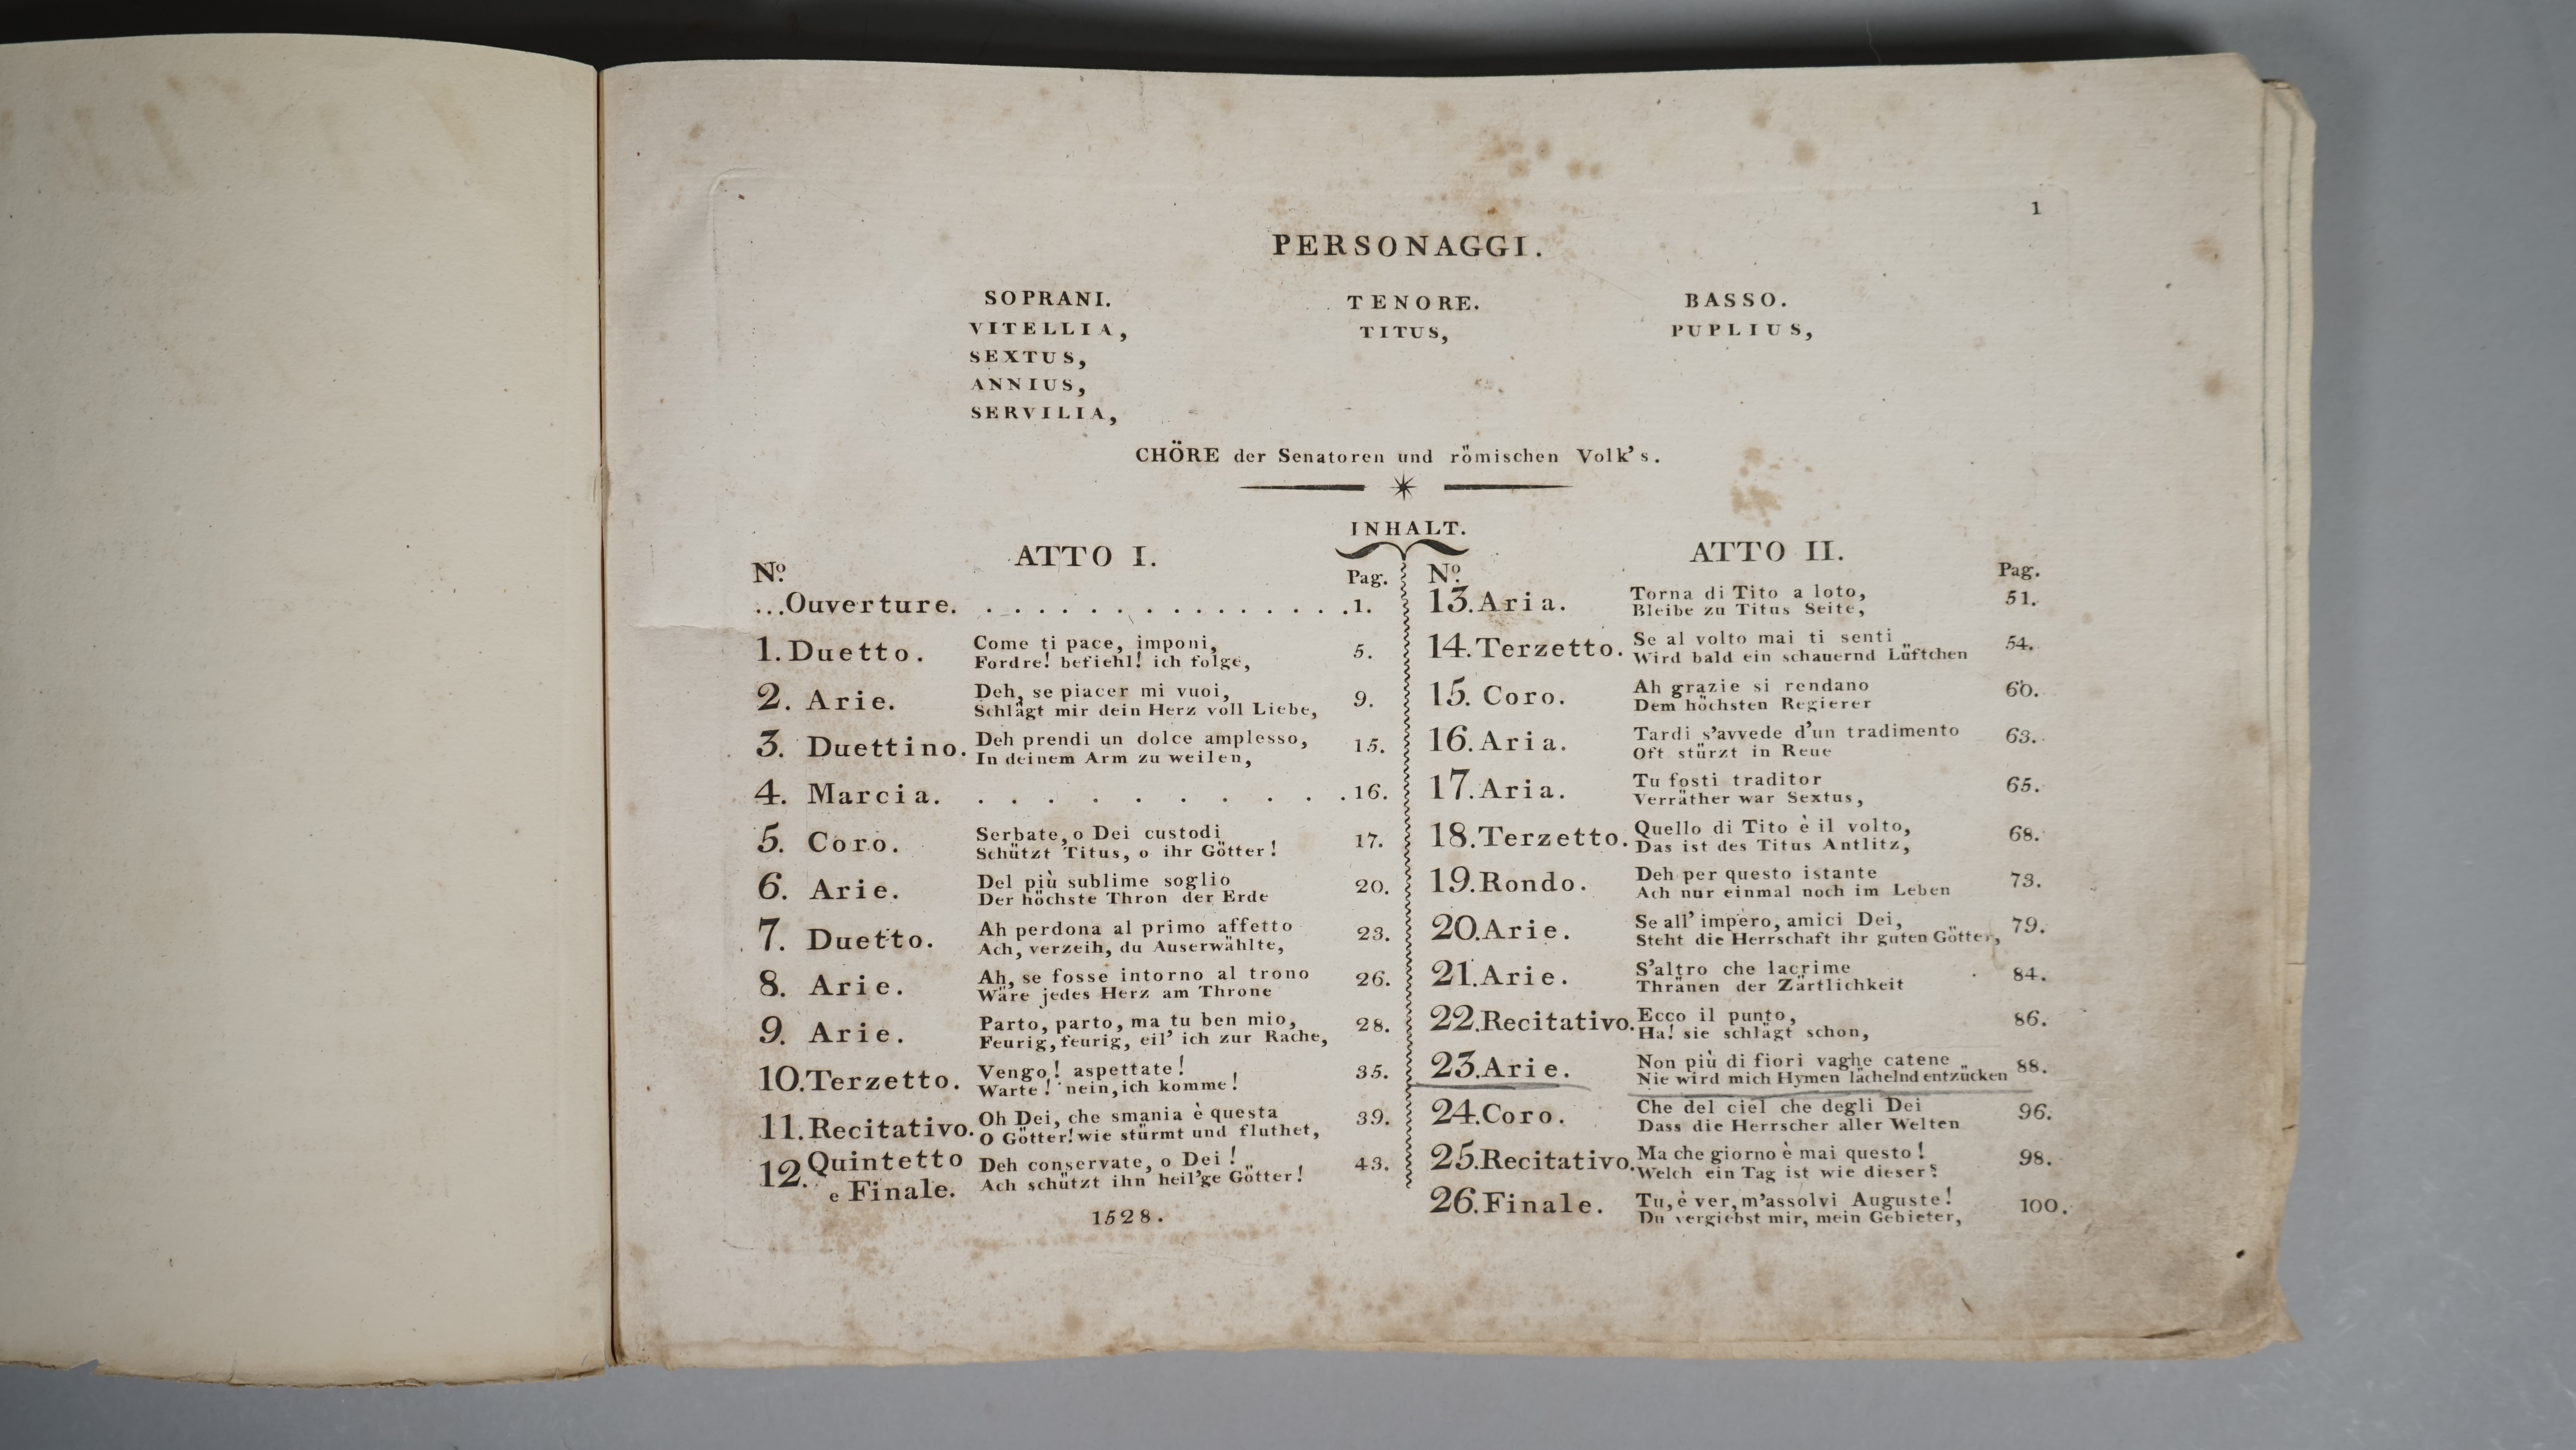 1
PERSONAGGI.
SOPRANI.
VITELLIA,
SEXTUS,
ANNIUS,
SERVILIA,
TENORE.
TITUS,
BASSO.
PUPLIUS,
CHÖRE der Senatoren und römischen Volk's.
INHALT.
ATTO I.
No. Pag.
...Ouverture. . . . . . . . . . . . . . . . 1.
1. Duetto. Come ti pace, imponi, 5.
Fordre! befiehl! ich folge,
2. Arie. Deh, se piacer mi vuoi, 9.
Schlägt mir dein Herz voll Liebe,
3. Duettino. Deh prendi un dolce amplesso, 15.
In deinem Arm zu weilen,
4. Marcia. . . . . . . . . . . 16.
5. Coro. Serbate, o Dei custodi 17.
Schützt Titus, o ihr Götter!
6. Arie. Del più sublime soglio 20.
Der höchste Thron der Erde
7. Duetto. Ah perdona al primo affetto 23.
Ach, verzeih, du Auserwählte,
8. Arie. Ah, se fosse intorno al trono 26.
Wäre jedes Herz am Throne
9. Arie. Parto, parto, ma tu ben mio, 28.
Feurig, feurig, eil' ich zur Rache,
10. Terzetto. Vengo! aspettate! 35.
Warte! nein, ich komme!
11. Recitativo. Oh Dei, che smania è questa 39.
O Götter! wie stürmt und fluthet,
12. Quintetto Deh conservate, o Dei! 43.
e Finale. Ach schützt ihn heil'ge Götter!
1528.
ATTO II.
No. Pag.
13. Aria. Torna di Tito a loto, 51.
Bleibe zu Titus Seite,
14. Terzetto. Se al volto mai ti senti 54.
Wird bald ein schauernd Lüftchen
15. Coro. Ah grazie si rendano 60.
Dem höchsten Regierer
16. Aria. Tardi s'avvede d'un tradimento 63.
Oft stürzt in Reue
17. Aria. Tu fosti traditor 65.
Verräther war Sextus,
18. Terzetto. Quello di Tito è il volto, 68.
Das ist des Titus Antlitz,
19. Rondo. Deh per questo istante 73.
Ach nur einmal noch im Leben
20. Arie. Se all' impero, amici Dei, 79.
Steht die Herrschaft ihr guten Götter,
21. Arie. S'altro che lacrime 84.
Thränen der Zärtlichkeit
22. Recitativo. Ecco il punto, 86.
Ha! sie schlägt schon,
23. Arie. Non più di fiori vaghe catene 88.
Nie wird mich Hymen lächelnd entzücken
24. Coro. Che del ciel che degli Dei 96.
Dass die Herrscher aller Welten
25. Recitativo. Ma che giorno è mai questo! 98.
Welch ein Tag ist wie dieser?
26. Finale. Tu, è ver, m'assolvi Auguste! 100.
Du vergiebst mir, mein Gebieter,